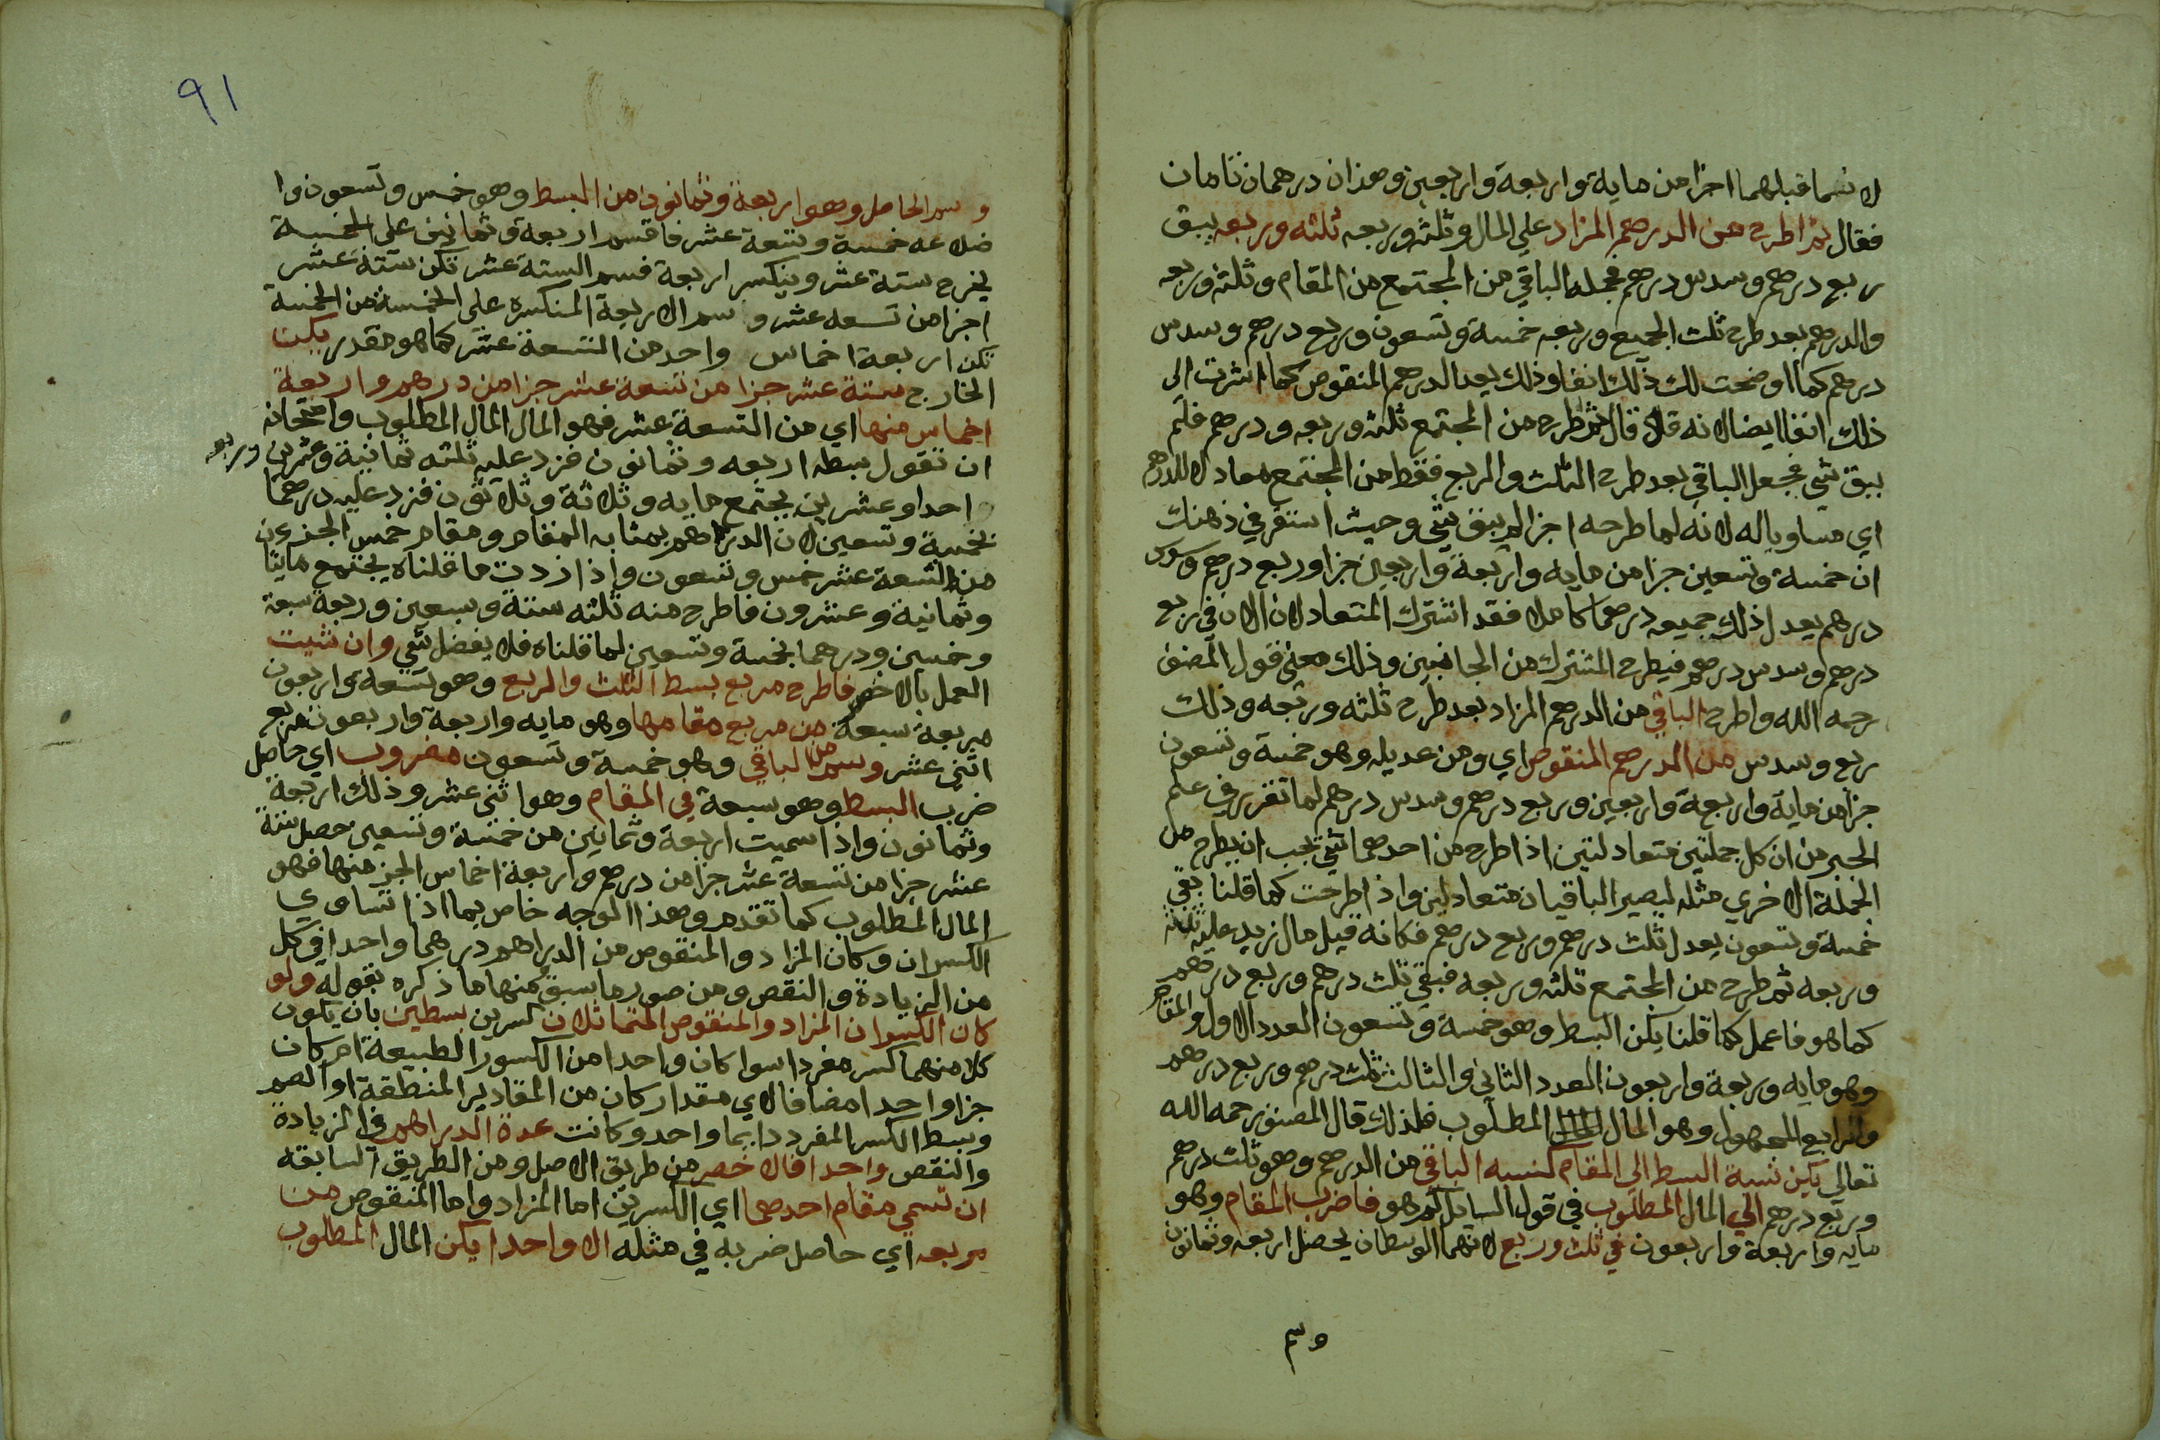 لا نسما قبلهما اجزا من ماية واربعة واربعين وهذان درهمان تامان
فقال ثم اطرح من الدرهم المزاد علي المال وثلثه وربعه ثلثه وربعه يبق
ربع درهم وسدس درهم فجملة الباقي من المجتمع من المقام وثلثه وربعه
والدرهم بعد طرح ثلث الجميع وربعه خمسة وتسعون وربع درهم وسدس
درهم كما اوضحت لك ذلك انفا وذلك يعد الدرهم المنقوص كما اشرت الي
ذلك انفا ايضا لانه قال ثم طرح من المجتمع ثلثه وربعه ودرهم فلم
يبق شي فجعل الباقي بعد طرح الثلث والربع فقط من المجتمع معادلا للدرهم
اي مساويا له لانه لما طرحه اجزا لم يبق شي وحيث استقر في ذهنك
ان خمسة وتسعين جزا من مايه واربعة واربعين جزا وربع درهم وسدس
درهم يعدل ذلك جميعه درهما كاملا فقد اشترك المتعادلان الان في ربع
درهم وسدس درهم فيطرح المشترك من الجانبين وذلك معني قول المصنف
رحمه الله واطرح الباقي من الدرهم المزاد بعد طرح ثلثه وربعه وذلك
ربع وسدس من الدرهم المنقوص اي ومن عديله وهو خمسة وتسعون
جزا من ماية واربعة واربعين وربع درهم وسدس درهم لما تقرر في علم
الجبر من ان كل جملتين متعادلتين اذا طرح من احدهما شي يجب ان يطرح من
الجملة الاخري مثله ليصير الباقيان متعادلين واذا طرحت كما قلنا بقي
خمسة وتسعون يعدل ثلث درهم وربع درهم فكانه قيل مال زيد عليه ثلثه
وربعه ثم طرح من المجتمع ثلثه وربعه فبقي ثلث درهم وربع درهم
كما هو فاعمل كما قلنا يكن البسط وهو خمسة وتسعون العدد الاول والمقام
وهو مايه وربعة واربعون العدد الثاني والثالث ثلث درهم وربع درهم
والرابع المجهول وهو المال المطلوب فلذلك قال المصنف رحمه الله
تعالي يكن نسبة البسط الي المقام كنسبه الباقي من الدرهم وهو ثلث درهم
وربع درهم الي المال المطلوب في قول السايل كم هو فاضرب المقام وهو
مايه واربعة واربعون في ثلث وربع لانهما الوسطان يحصل اربعه وثمانون
وسم
٩١
وسم الحاصل وهو اربعة وثمانون من البسط وهو خمس وتسعون وا
ضلاعه خمسة وتسعة عشر فاقسم اربعة وثمانين علي الخمسة
يخرج ستة عشر وينكسر اربعة فسم الستة عشر تكن ستة عشر
اجزا من تسعه عشر وسم الاربعة المنكسره علي الخمسة من الخمسة
تكن اربعة اخماس واحد من التسعة عشر كما هو مقدر يكن
الخارج ستة عشر جزا من تسعة عشر جزا من درهم واربعة
اخماس منها اي من التسعة عشر فهو المال المال المطلوب وامتحانه
ان تقول بسطه اربعه وثمانون فزد عليه ثلثه ثمانية وعشرين وربعه
احدا وعشرين يجتمع مايه وثلاثة وثلاثون فزد عليه درهما
بخمسة وتسعين لان الدراهم بمثابه المقام ومقام خمس الجزء من
من التسعة عشر خمس وتسعون واذا زدت ما قلناه يجتمع مايتا
وثمانية وعشرون فاطرح منه ثلثه ستة وسبعين وربعه سبعة
وخمسين ودرهما بخمسة وتسعين لما قلناه فلا يفضل شي وان شيت
العمل بالاخصر فاطرح مربع بسط الثلث والربع وهو تسعة واربعون
مربعة سبعة من مربع مقامها وهو مايه واربعة واربعون مربع
اثني عشر وسم من الباقي وهو خمسة وتسعون مضروب اي حاصل
ضرب البسط وهو سبعة في المقام وهو اثني عشر وذلك اربعة
وثمانون واذا سميت اربعة وثمانين من خمسة وتسعين حصل ستة
عشر جزا من تسعة عشر جزا من درهم واربعة اخماس الجز منها فهو
المال المطلوب كما تقدم وهذا الوجه خاص بما اذا تساوي
الكسران وكان المزاد والمنقوص من الدراهم درهما واحدا في كل
من الزيادة والنقص ومن صور ما سبق منها ما ذكره بقوله ولو
كان الكسران المزاد والمنقوص المتماثلان كسرين بسطين بان يكون
كلا منهما كسر مفردا سوا كان واحدا من الكسور الطبيعة ام كان
جزا واحدا مضافا لاي مقدار كان من المقادير المنطقة او الصم
وبسط الكسر المفرد دايما واحد وكانت عدة الدراهم في الزيادة
والنقص واحدا فالاخصر من طريق الاصل ومن الطريق السابقه
ان تسمي مقام احدهما اي الكسرين اما المزاد واما المنقوص من
مربعه اي حاصل ضربه في مثله الا واحدا يكن المال المطلوب